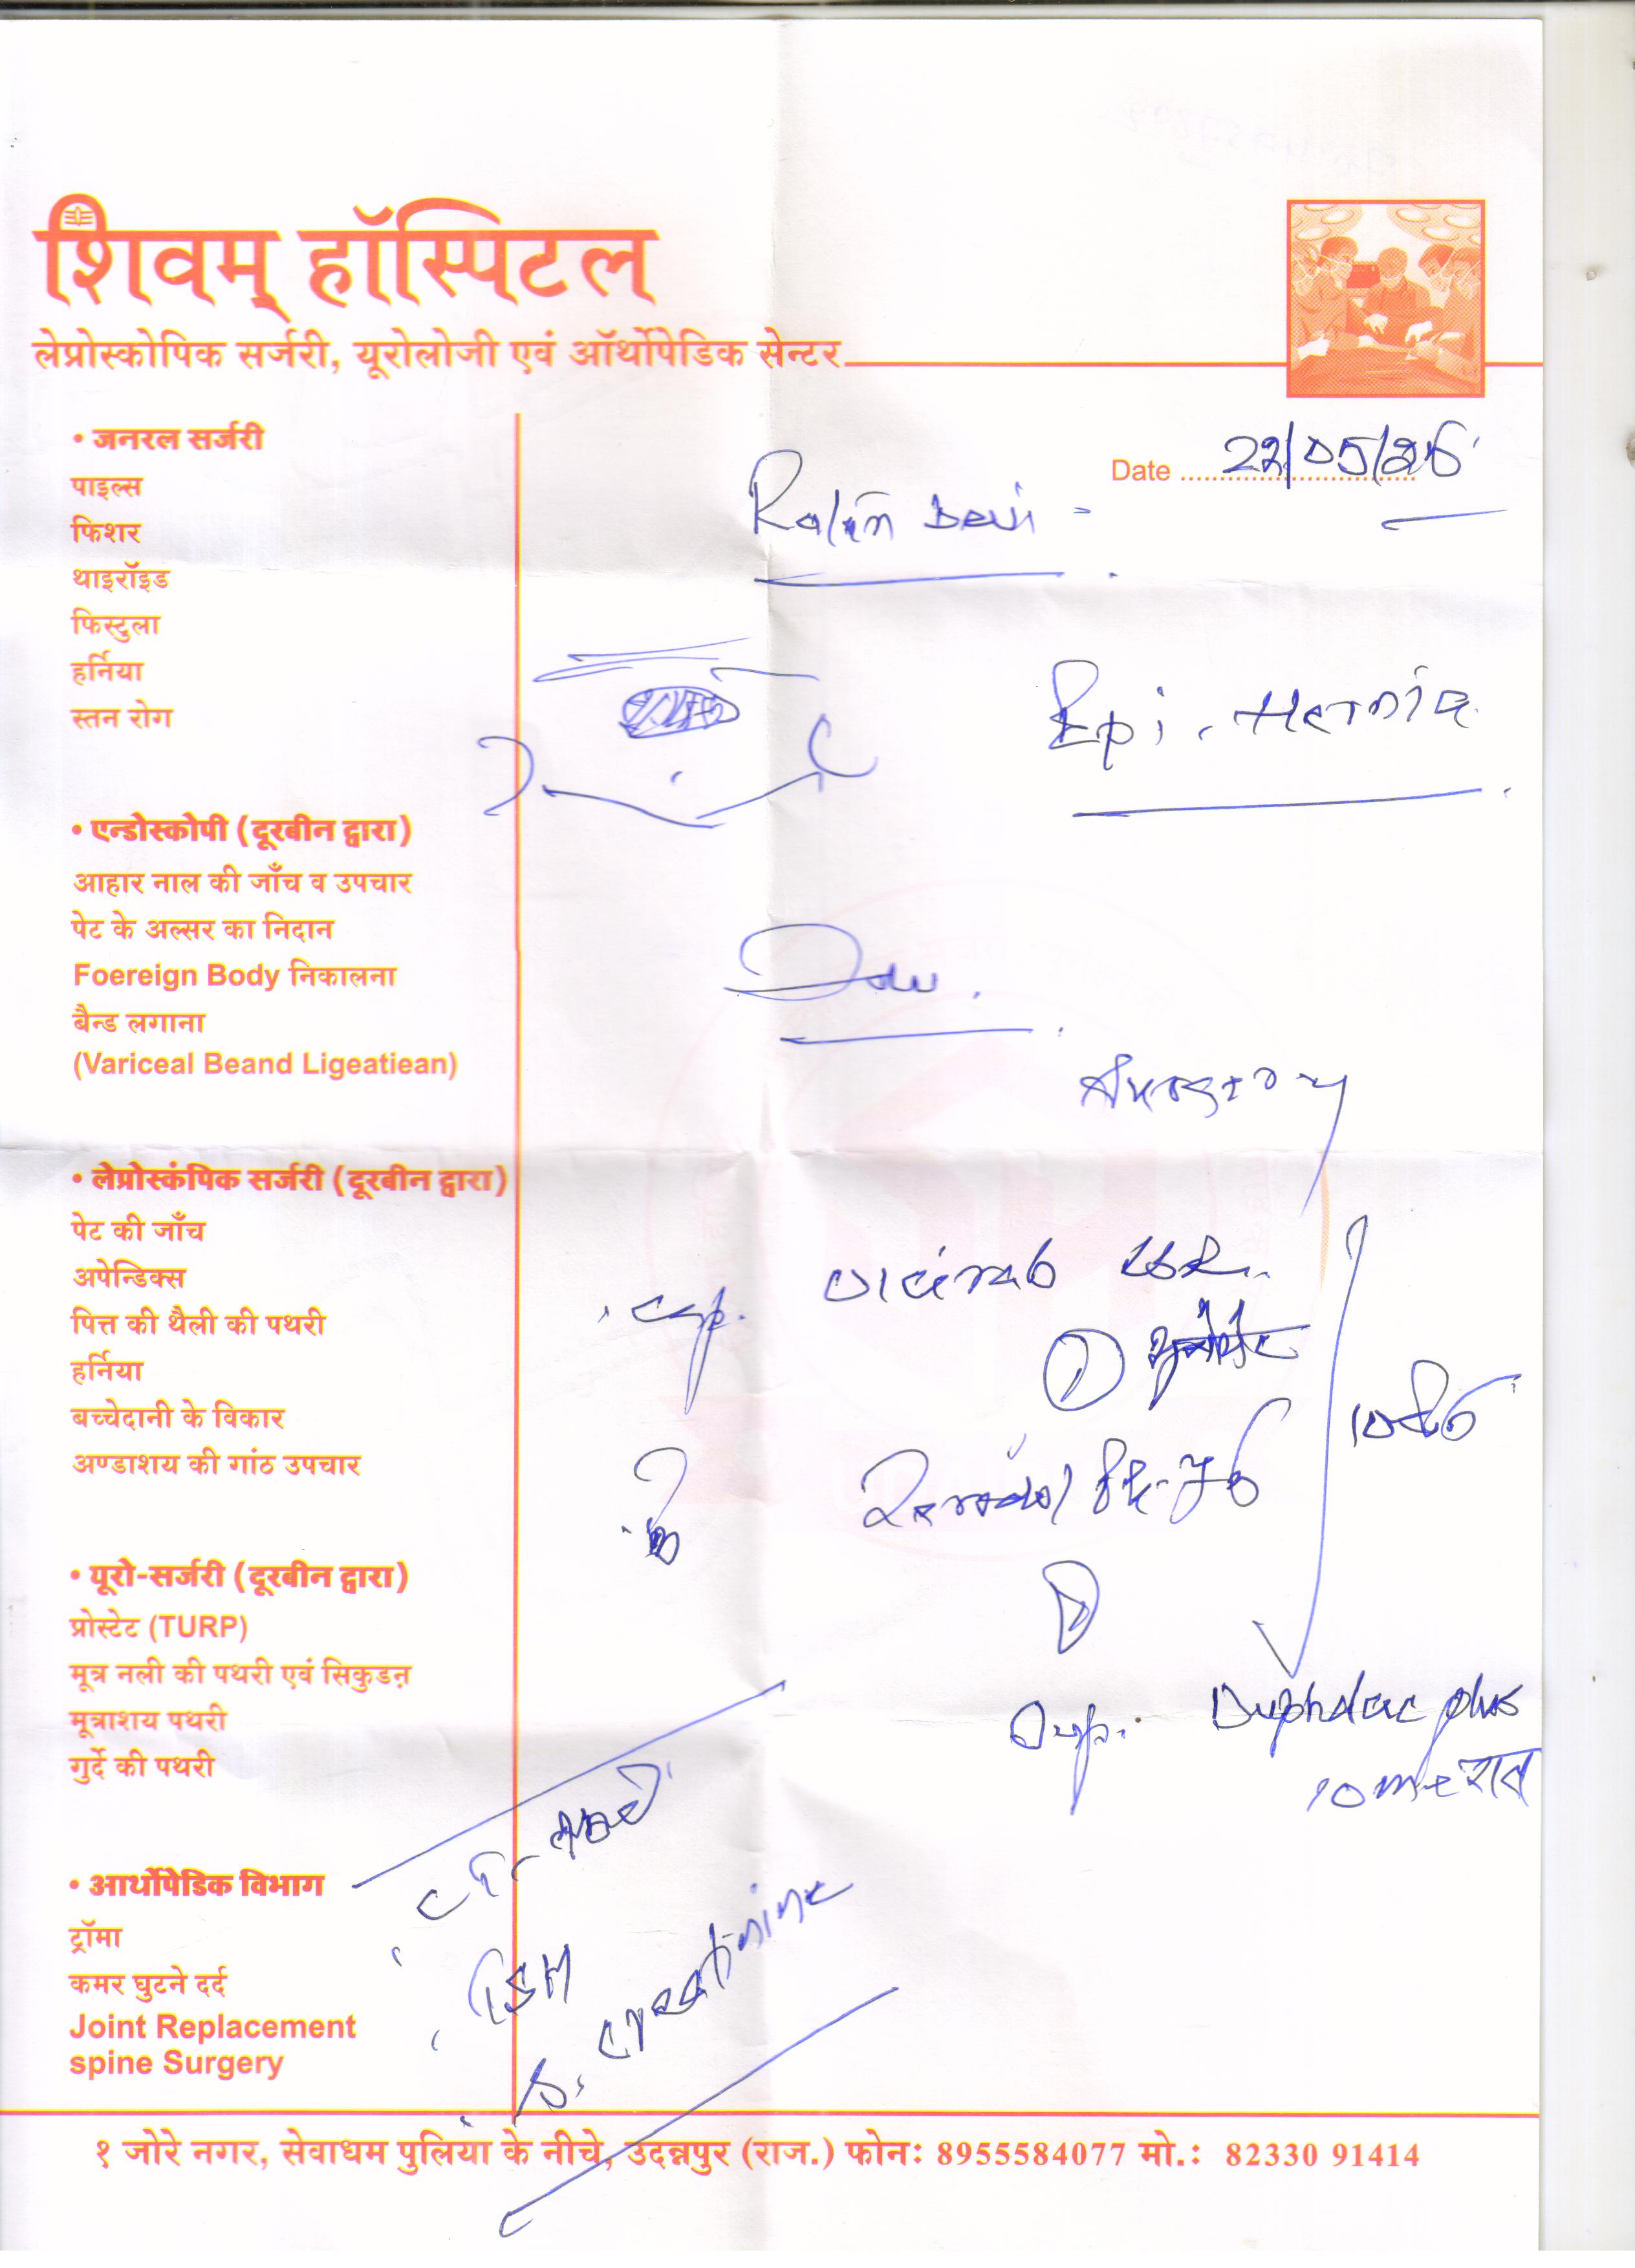 शिवम् हॉस्पिटल
लेप्रोस्कोपिक सर्जरी, यूरोलोजी एवं ऑर्थोपेडिक सेन्टर
Date 22/05/26
Devi
Epi. Hernia
Cap.
10
Syp. Duphalac plus
10 ml रात
TSH
S. creatinine
• जनरल सर्जरी
पाइल्स
फिशर
थाइरॉइड
फिस्टुला
हर्निया
स्तन रोग
• एन्डोस्कोपी (दूरबीन द्वारा)
आहार नाल की जाँच व उपचार
पेट के अल्सर का निदान
Foereign Body निकालना
बैन्ड लगाना
(Variceal Beand Ligeatiean)
• लेप्रोस्कंपिक सर्जरी (दूरबीन द्वारा)
पेट की जाँच
अपेन्डिक्स
पित्त की थैली की पथरी
हर्निया
बच्चेदानी के विकार
अण्डाशय की गांठ उपचार
• यूरो-सर्जरी (दूरबीन द्वारा)
प्रोस्टेट (TURP)
मूत्र नली की पथरी एवं सिकुडऩ
मूत्राशय पथरी
गुर्दे की पथरी
• आर्थोपेडिक विभाग
ट्रॉमा
कमर घुटने दर्द
Joint Replacement
spine Surgery
१ जोरे नगर, सेवाधम पुलिया के नीचे, उदन्नपुर (राज.) फोनः 8955584077 मो.: 82330 91414